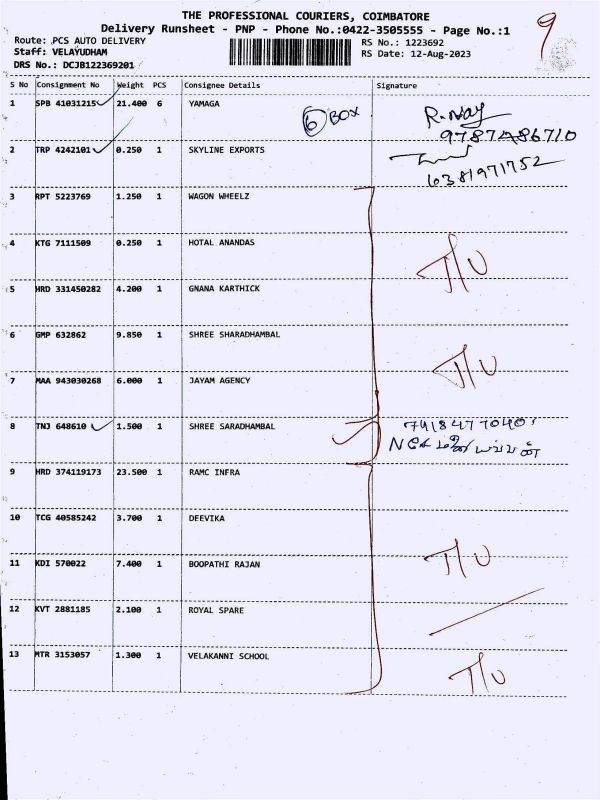 THE PROFESSIONAL COURIERS, COIMBATORE
Delivery Runsheet - PNP - Phone No.:0422-3505555 - Page No.:1
9
Route: PCS AUTO DELIVERY
RS No.: 1223692
Staff: VELAYUDHAM
RS Date: 12-Aug-2023
DRS No.: DCJB122369201
S No Consignment No Weight PCS Consignee Details Signature
1 SPB 41031215 21.400 6 YAMAGA
6 BOX
2 TRP 4242101 0.250 1 SKYLINE EXPORTS
6381971752
3 RPT 5223769 1.250 1 WAGON WHEELZ
4 KTG 7111509 0.250 1 HOTAL ANANDAS
T/U
5 HRD 331450282 4.200 1 GNANA KARTHICK
6 GMP 632862 9.850 1 SHREE SHARADHAMBAL
T/U
7 MAA 943030268 6.000 1 JAYAM AGENCY
8 TNJ 648610 1.500 1 SHREE SARADHAMBAL
9 HRD 374119173 23.500 1 RAMC INFRA
10 TCG 40585242 3.700 1 DEEVIKA
11 KDI 570022 7.400 1 BOOPATHI RAJAN
T/U
12 KVT 2881185 2.100 1 ROYAL SPARE
13 MTR 3153057 1.300 1 VELAKANNI SCHOOL
T/U